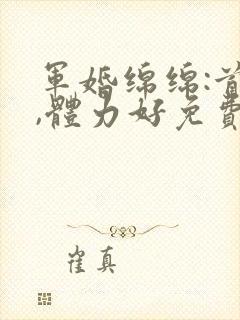 軍婚綿綿:首
,體力好免費
崔真